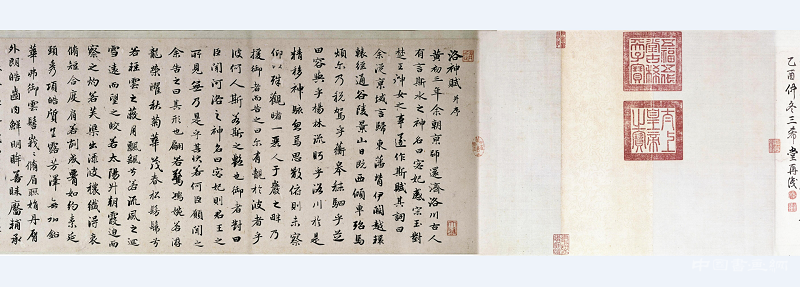 乙酉仲冬三希堂再識
五福五代堂古稀天子寶
太上皇帝之寶
洛神賦 并序
黄初三年余朝京師還濟洛川古人
有言斯水之神名曰宓妃感宋玉對
楚王神女之事遂作斯賦其詞曰
余從京域言歸東藩背伊闕越轘
轅經通谷陵景山日既西傾車殆馬
煩尔乃税駕乎蘅皋秣駟乎芝
田容與乎楊林流眄乎洛川於是
精移神駭忽焉思散俯則未察
仰以殊觀睹一麗人于巖之畔乃
援御者而告之曰尔有覿於彼者乎
彼何人斯若斯之豔也御者對曰
臣聞河洛之神名曰宓妃則君王之
所見無乃是乎其狀若何臣願聞之
余告之曰其形也翩若驚鴻婉若游
龍榮曜秋菊華茂春松髣髴兮
若輕雲之蔽月飄飖兮若流風之迴
雪遠而望之皎若太陽升朝霞迫而
察之灼若芙蕖出淥波襛纖得衷
脩短合度肩若削成腰如約素延
頸秀項皓質呈露芳澤無加鉛
華弗御雲髻峩峩脩眉聯娟丹唇
外朗皓齒内鮮明眸善睞靨輔承